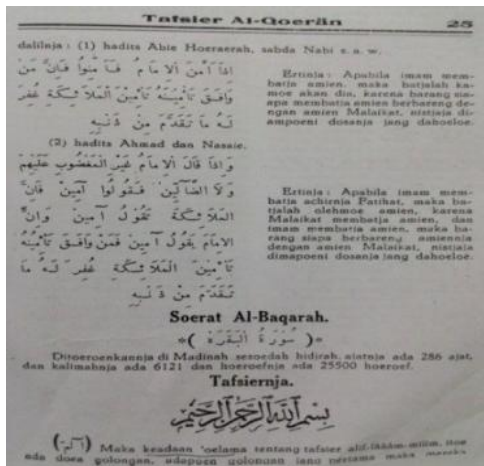 Tafsier Al-Qoerän 25
dalilnja : (1) hadits Abie Hoeraerah, sabda Nabi s. a. w.
اِذَا اَمَّنَ اْلاِمَامُ فَأَمِّنُوا فَاِنَّ مَنْ
وَافَقَ تَأْمِيْنُهُ تَأْمِيْنَ الْمَلاَئِكَةِ غُفِرَ
لَهُ مَا تَقَدَّمَ مِنْ ذَنْبِهِ
Ertinja : Apabila imam mem-
batja amien, maka batjalah ka-
moe akan dia, karena barang sia-
apa membatja amien berbareng de-
ngan amien Malaikat, nistjaja di-
ampoeni dosanja jang dahoeloe.
(2) hadits Ahmad dan Nasaie.
وَ اِذَا قَالَ اْلاِمَامُ غَيْرِ الْمَغْضُوبِ عَلَيْهِمْ
وَلاَ الضَّالِّيْنَ فَقُوْلُوا آمِيْنَ فَاِنَّ
الْمَلاَئِكَةَ تَقُوْلُ آمِيْنَ وَاِنَّ
اْلاِمَامَ يَقُوْلُ آمِيْنَ فَمَنْ وَافَقَ تَأْمِيْنُهُ
تَأْمِيْنَ الْمَلاَئِكَةِ غُفِرَ لَهُ مَا
تَقَدَّمَ مِنْ ذَنْبِهِ
Ertinja : Apabila imam mem-
batja achirnja Fatihat, maka ba-
tjalah olehmoe amien, karena
Malaikat membatja amien, dan
imam membatja amien, maka ba-
rang siapa berbareng amiennja
dengan amien Malaikat, nistjaja
dimapoeni dosanja jang dahoeloe.
Soerat Al-Baqarah.
*( سُوْرَةُ الْبَقَرَةِ )*
Ditoeroenkannja di Madinah sesoedah hidjrah, ajatnja ada 286 ajat,
dan kalimahnja ada 6121 dan hoeroefnja ada 25500 hoeroef.
Tafsiernja.
بِسْمِ اللهِ الرَّحْمٰنِ الرَّحِيْمِ
(الٓمٓ) Maka keadaan 'oelama tentang tafsier alif-lââm-mîîm, itoe
ada doea golongan, adapoen golongan jang pertama maka mereka